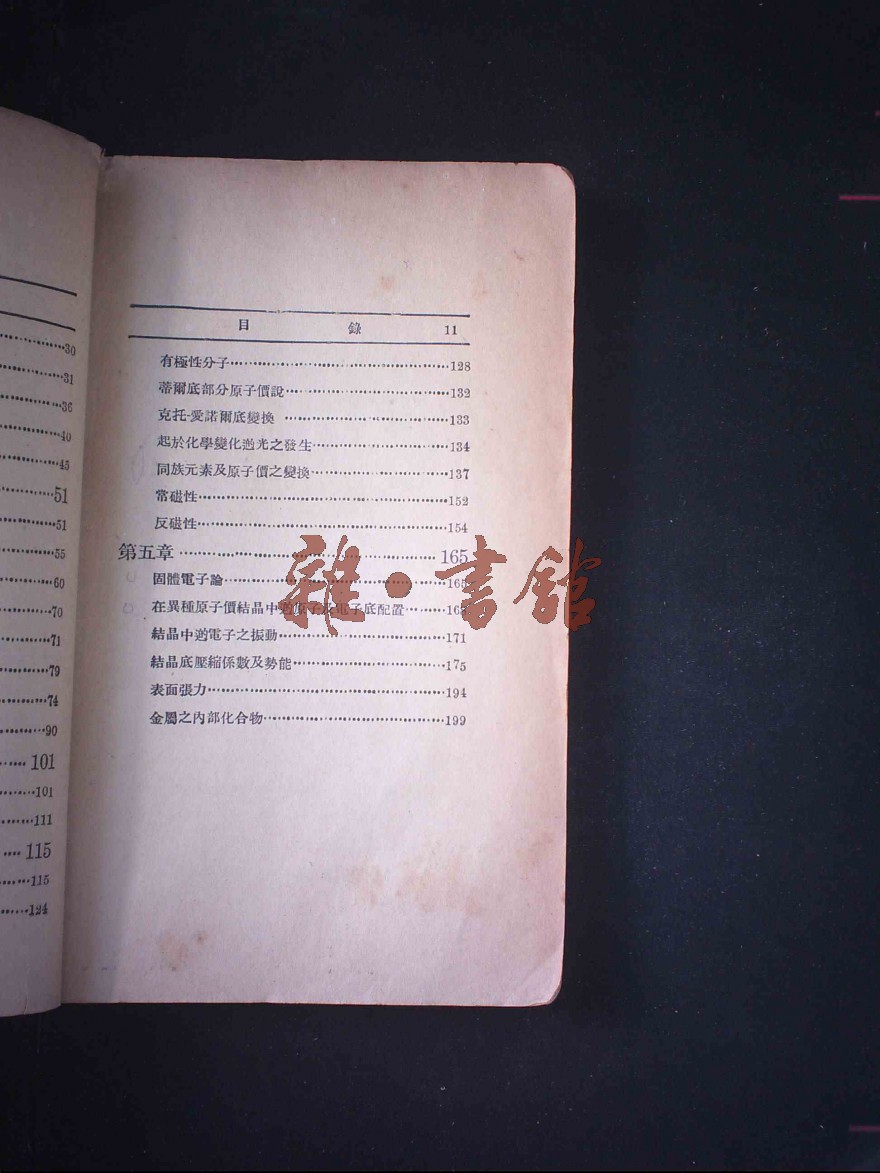 30
31
36
40
45
51
51
55
60
70
71
79
74
90
101
101
111
115
115
124
目 錄 11
有極性分子 128
蒂爾底部分原子價說 132
克托-愛諾爾底變換 133
起於化學變化逎光之發生 134
同族元素及原子價之變換 137
常磁性 152
反磁性 154
第五章 165
固體電子論 165
在異種原子價結晶中逎原子及電子底配置
結晶中逎電子之振動 171
結晶底壓縮係數及勢能 175
表面張力 194
金屬之內部化合物 199
雜·書館